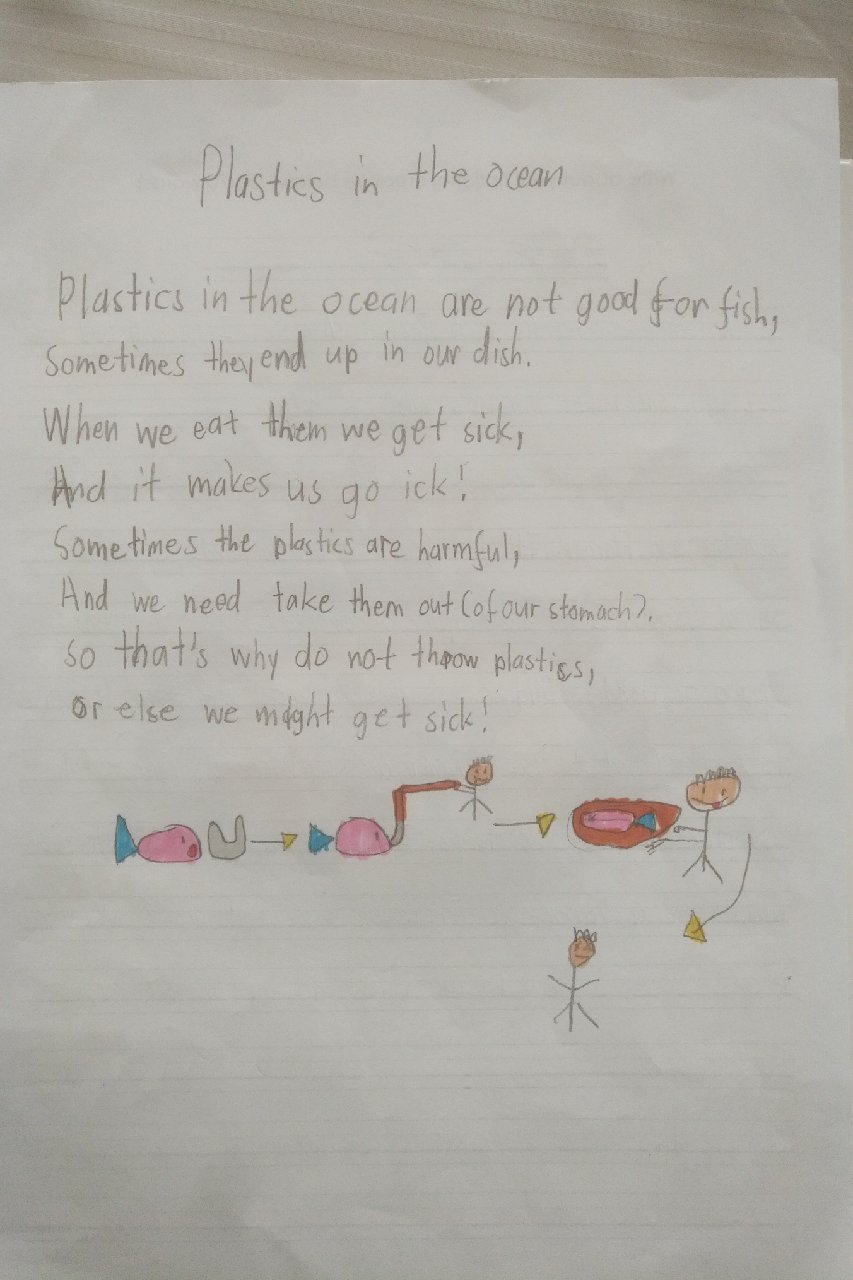 Plastics in the ocean
Plastics in the ocean are not good for fish,
Sometimes they end up in our dish.
When we eat them we get sick,
And it makes us go ick!
Sometimes the plastics are harmful,
And we need take them out (of our stomach).
So that's why do not throw plastics,
or else we might get sick!